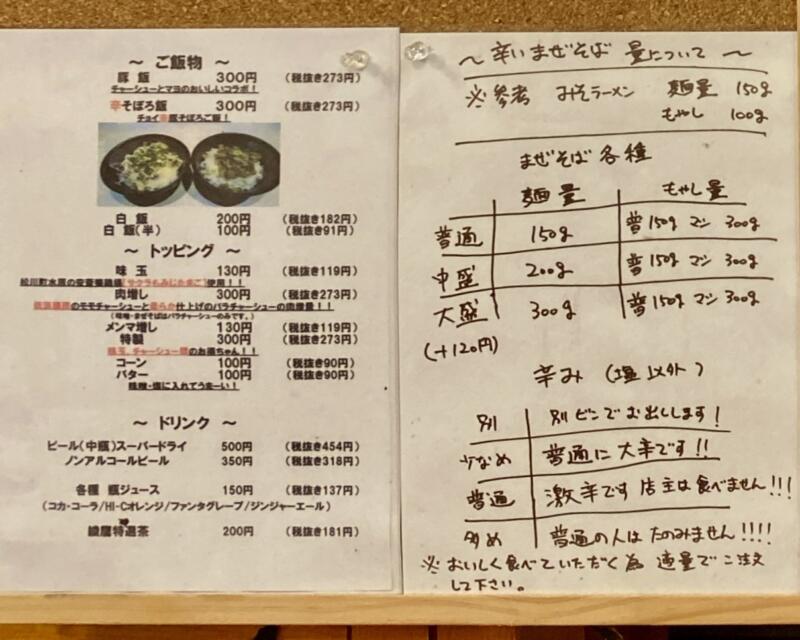 ～ ご飯物 ～
豚 飯 300円 (税抜き273円)
チャーシューとマヨのおいしいコラボ！
辛そぼろ飯 300円 (税抜き273円)
チョイ辛豚そぼろご飯！
白 飯 200円 (税抜き182円)
白 飯(半) 100円 (税抜き91円)
～ トッピング ～
味 玉 130円 (税抜き119円)
(サクラもみじたまご)使用！！
肉増し 300円 (税抜き273円)
のモモチャーシューと柔らか仕上げのバラチャーシューの肉増量！！
(味噌・まぜそばはバラチャーシューのみです。)
メンマ増し 130円 (税抜き119円)
特製 300円 (税抜き273円)
味玉、チャーシュー のお得ちゃん！！
コーン 100円 (税抜き90円)
バター 100円 (税抜き90円)
味噌・塩に入れてうまーい！
～ ドリンク ～
ビール(中瓶)スーパードライ 500円 (税抜き454円)
ノンアルコールビール 350円 (税抜き318円)
各種 瓶ジュース 150円 (税抜き137円)
(コカ・コーラ/HI-Cオレンジ/ファンタグレープ/ジンジャーエール)
綾鷹特選茶 200円 (税抜き181円)
～ 辛いまぜそば 量について ～
※参考 みそラーメン 麺量 150g
もやし 100g
まぜそば各種
麺量 もやし量
普通 150g 普150g マシ 300g
中盛 200g 普150g マシ 300g
大盛 300g 普150g マシ 300g
(+120円)
辛み (塩以外)
別 別ビンでお出しします！
少なめ 普通に大辛です!!
普通 激辛です 店主は食べません!!!
多め 普通の人はたのみません!!!!
※おいしく食べていただく為 適量でご注文
して下さい。